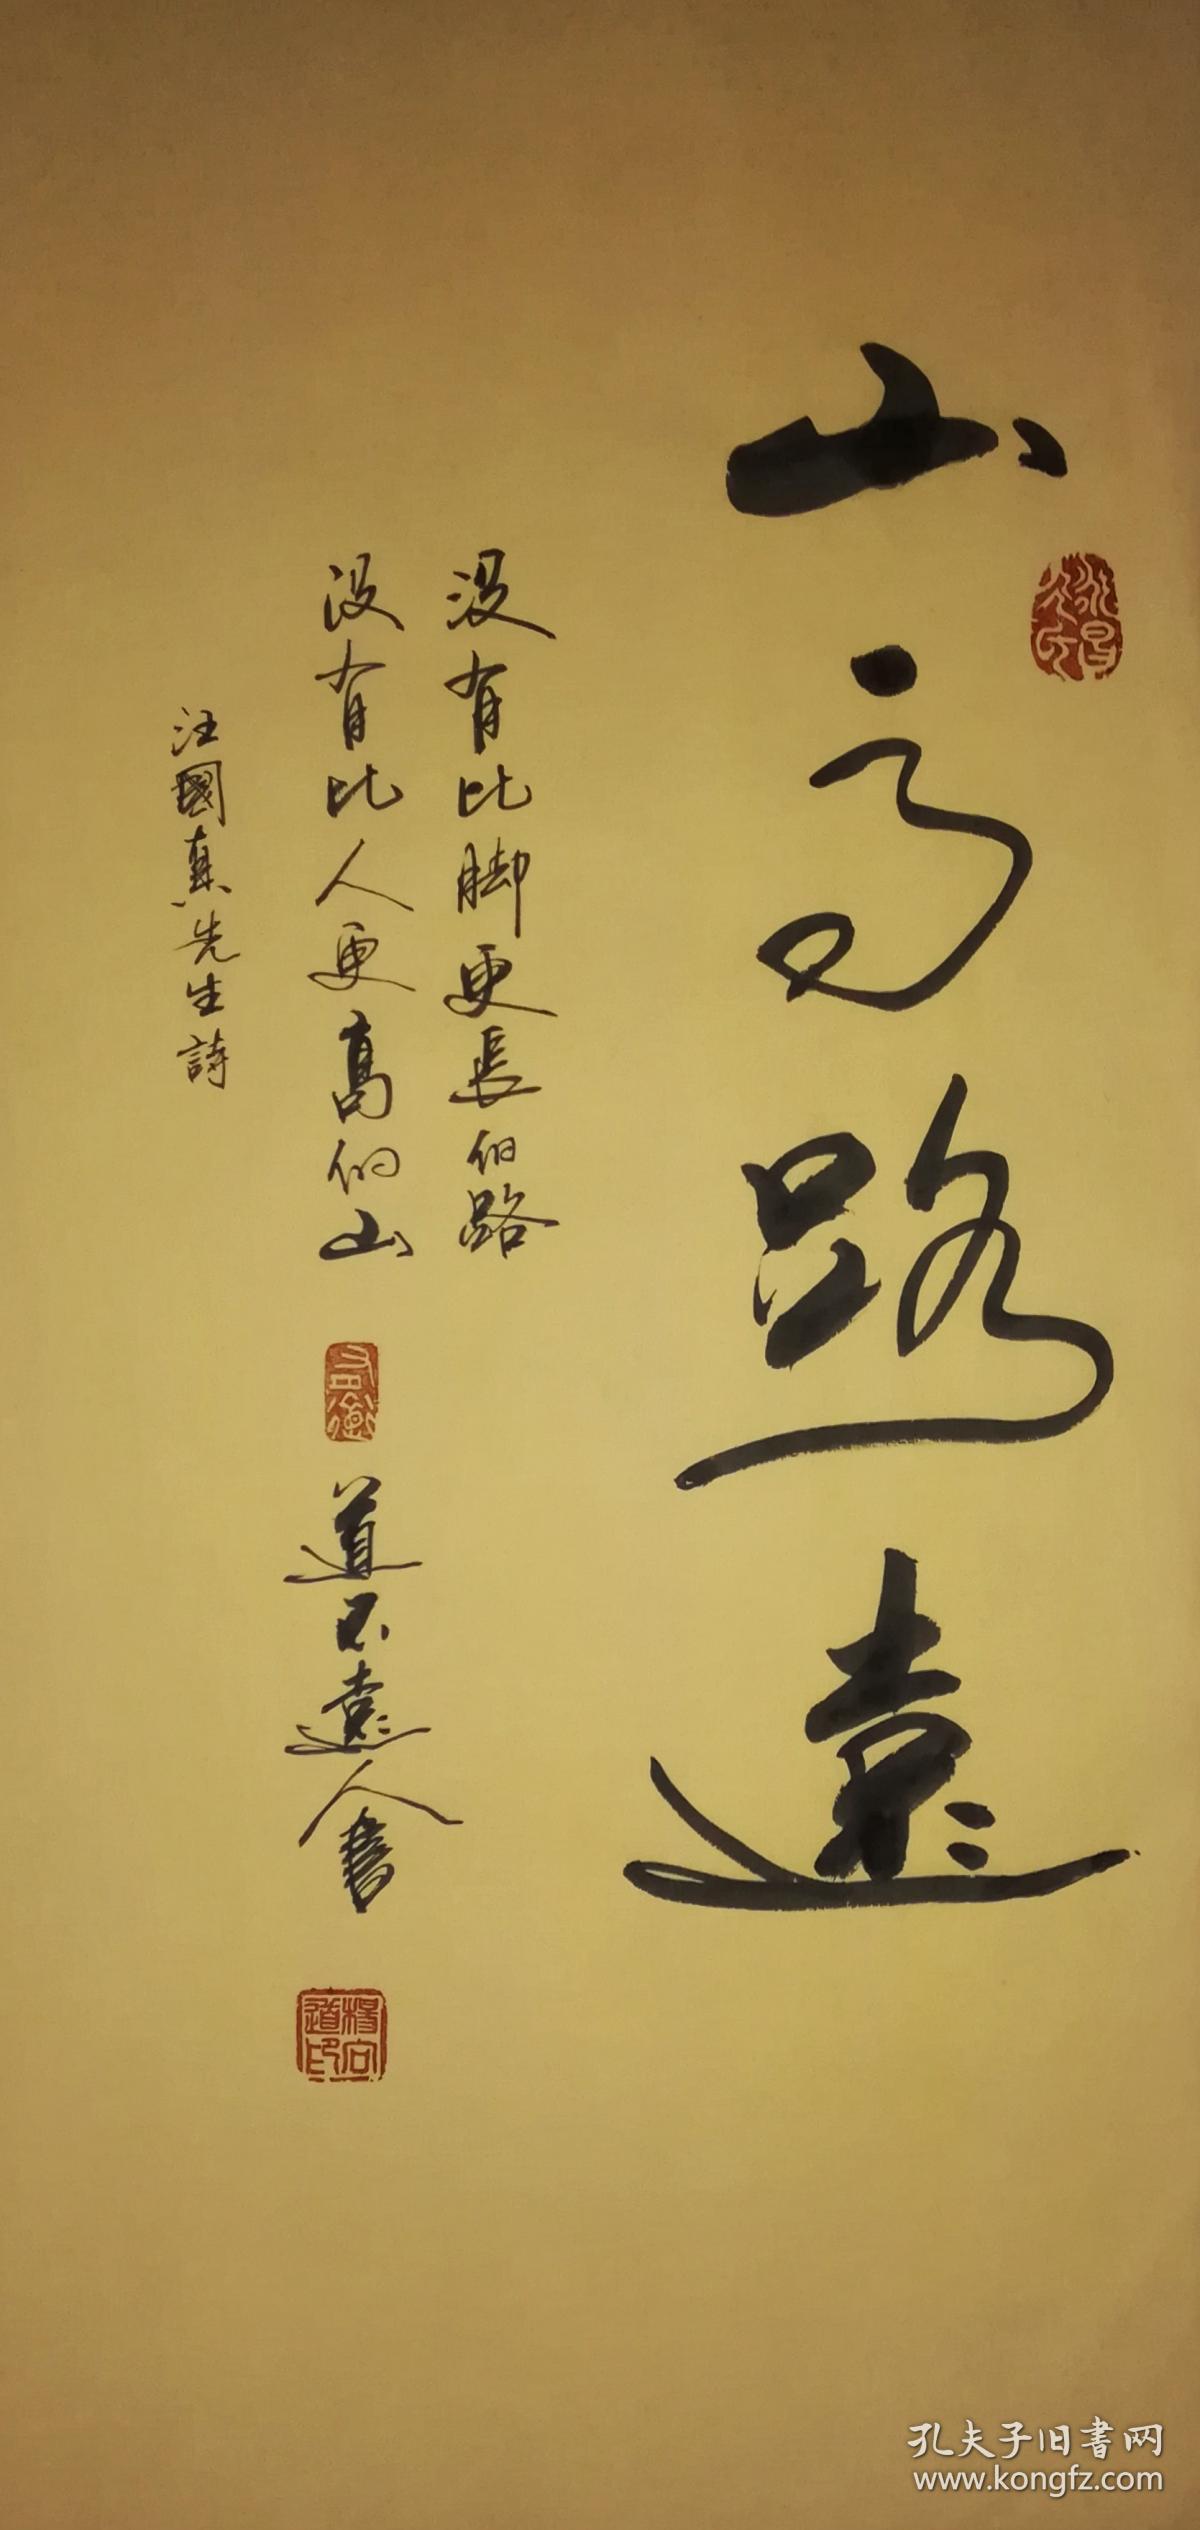 山高路遠
没有比脚更長的路
没有比人更高的山
道不遠人書
汪國真先生詩
楊向道印
孔夫子旧書网
www.kongfz.com